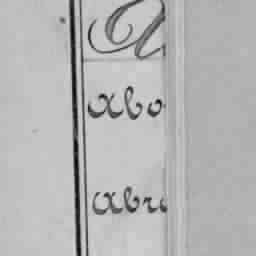 A
Abo
Abra